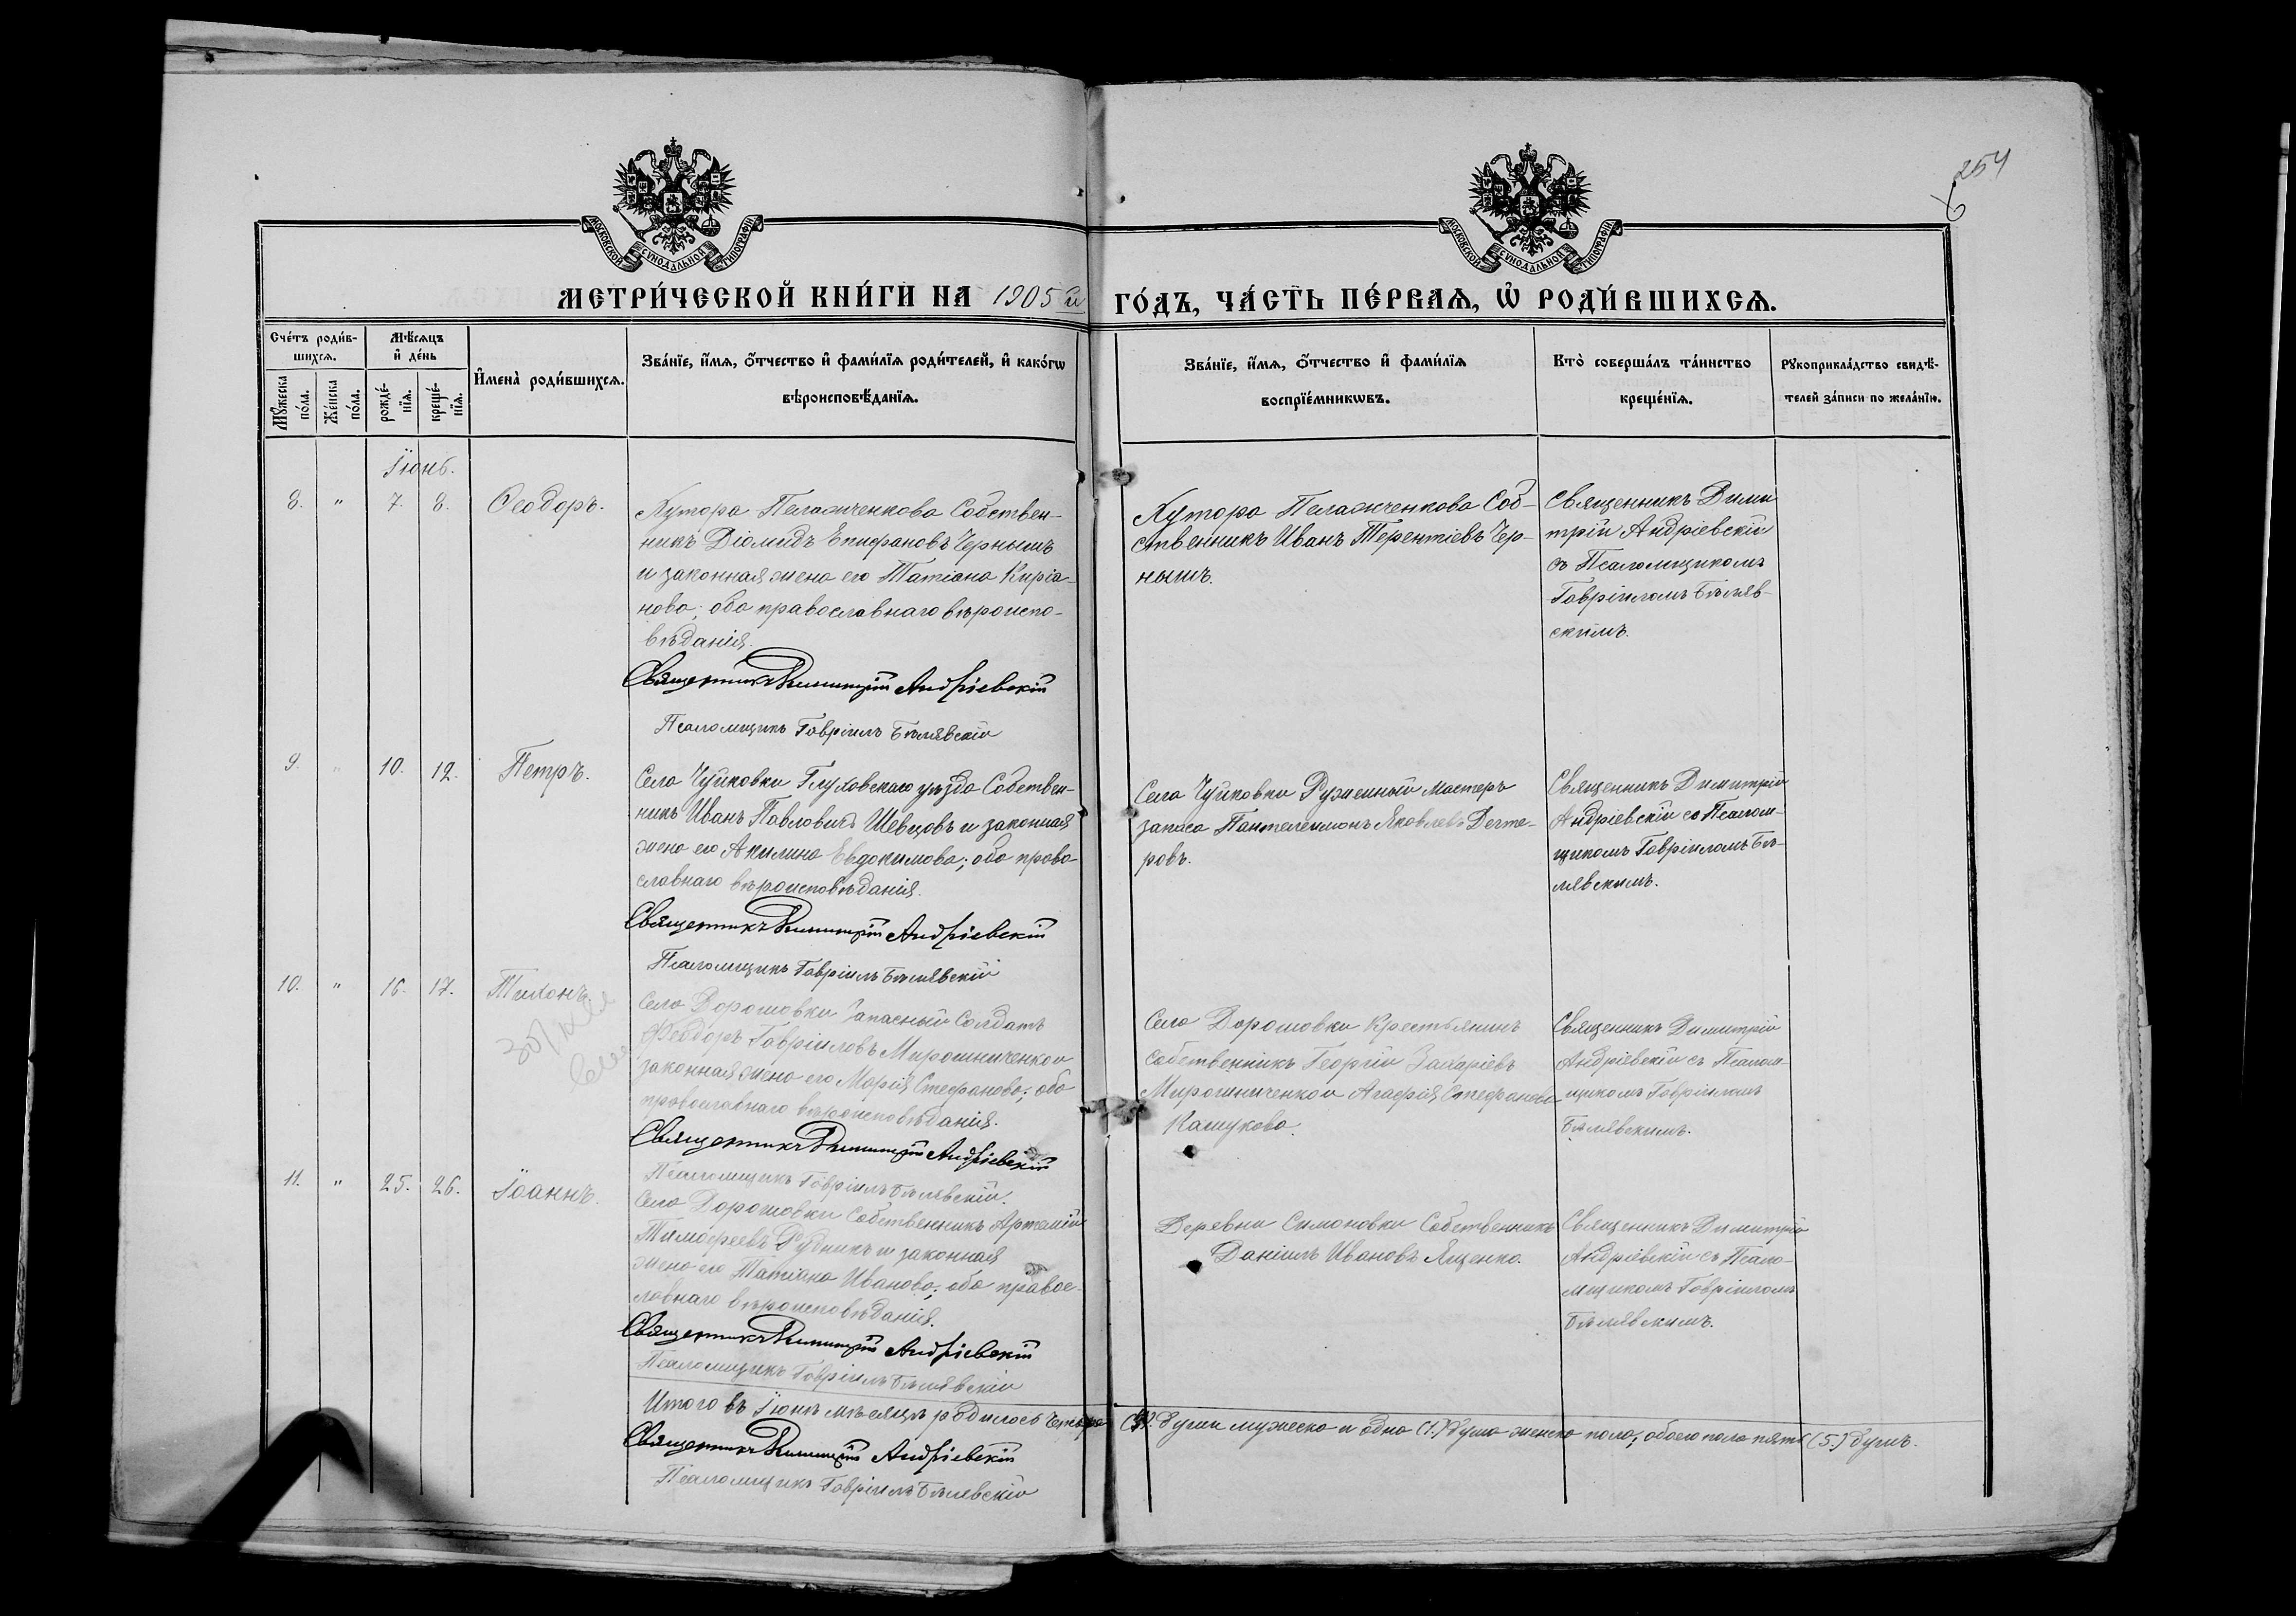 254
6
МОСКОВСКОЙ СУНОДАЛЬНОЙ ТИПОГРАФІИ
МОСКОВСКОЙ СУНОДАЛЬНОЙ ТИПОГРАФІИ
МЕТРИ́ЧЕСКОЙ КНИ́ГИ НА 1905й ГО́ДЪ, ЧА́СТЬ ПЕ́РВАѦ, Ѡ҆ РОДИ́ВШИХСѦ.
Сче́тъ роди́в-
шихсѧ.
Мѣ́сѧцъ
и҆ де́нь
Мꙋ́жеска
по́ла.
Же́нска
по́ла.
рожде́-
нїѧ.
креще́-
нїѧ.
И҆мена̀ роди́вшихсѧ.
Зва́нїе, и҆́мѧ, ѻ҆́тчество и҆ фами́лїѧ роди́телей, и҆ како́гѡ
вѣроисповѣ́данїѧ.
Зва́нїе, и҆́мѧ, ѻ҆́тчество и҆ фами́лїѧ
воспрїе́мникѡвъ.
Кто̀ соверша́лъ та́инство
креще́нїѧ.
Рꙋкоприкла́дство свидѣ́-
телей за́писи по жела́нїю.
Іюнь.
8. " 7. 8. Ѳеодоръ.
Хутора Пелагиченкова Собствен-
никъ Діомидъ Епифановъ Чернышъ
и законная жена его Татіана Киріа-
нова; оба православнаго вѣроиспо-
вѣданія.
Священникъ Димитрій Андріевскій
Псаломщикъ Гавріилъ Бѣлявскій
Хутора Пелагиченкова Соб-
ственникъ Иванъ Терентіевъ Чер-
нышъ.
Священникъ Дими
трій Андріевскій
съ Псаломщикомъ
Гавріиломъ Бѣляв-
скимъ.
9. " 10. 12. Петръ.
Села Чуйковки Глуховскаго уѣзда Собствен-
никъ Иванъ Павловичъ Шевцовъ и законная
жена его Акилина Евдокимова; оба право-
славнаго вѣроисповѣданія.
Священникъ Димитрій Андріевскій
Псаломщикъ Гавріилъ Бѣлявскій
Села Чуйковки Ружейный мастеръ
запаса Пантелеимонъ Яковлевъ Дегте-
ровъ.
Священникъ Димитрій
Андріевскій съ Псалом-
щикомъ Гавріиломъ Бѣ-
лявскимъ.
10. " 16. 17. Тихонъ.
Села Дорошовки Запасный Солдатъ
Ѳеодоръ Гавріиловъ Мирошниченко и
законная жена его Марія Стефанова; оба
православнаго вѣроисповѣданія.
Священникъ Димитрій Андріевскій
Псаломщикъ Гавріилъ Бѣлявскій.
Села Дорошовки Крестьянинъ
Собственникъ Георгій Захаріевъ
Мирошниченко и Агафія Стефанова
Кашукова.
Священникъ Димитрій
Андріевскій съ Псалом-
щикомъ Гавріиломъ
Бѣлявскимъ.
11. " 25. 26. Іоаннъ.
Села Дорошовки Собственникъ Артемій
Тимофеевъ Рудникъ и законная
жена его Татіана Иванова; оба правос-
лавнаго вѣроисповѣданія.
Священникъ Димитрій Андріевскій
Псаломщикъ Гавріилъ Бѣлявскій
Деревни Симоновки Собственникъ
Даніилъ Ивановъ Ященко.
Священникъ Димитрій
Андріевскій съ Псало-
мщикомъ Гавріиломъ
Бѣлявскимъ.
Итого въ Іюнѣ мѣсяцѣ родилось четыре (4). души мужеска и одна (1.) душа женска пола; обоего пола пять (5.) душъ.
Священникъ Димитрій Андріевскій
Псаломщикъ Гавріилъ Бѣлявскій